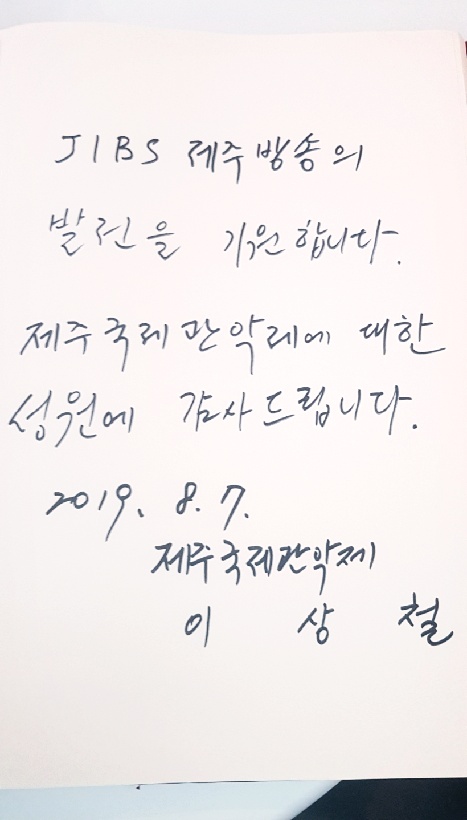 JIBS 제주방송의
발전을 기원합니다.
제주국제관악제에 대한
성원에 감사드립니다.
2019. 8. 7.
제주국제관악제
이 상 철